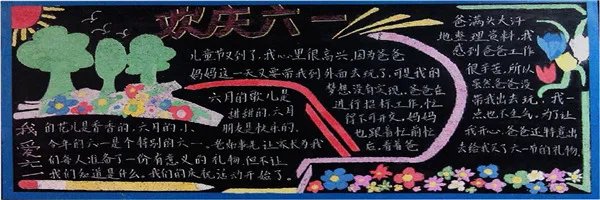 欢庆六一
我爱六一
六月的歌儿是
甜甜的,六月
的花儿是香香的,六月的小
朋友是快乐的,
今年的六一是个特别的六一。
们每人准备了一份有意义的礼物,但不让
我们知道是什么。我们的庆祝活动开始了。
儿童节又到了,我心里很高兴,因为爸爸
妈妈这一天又要带我到外面去玩了,可是我的
梦想没有实现,爸爸在
进行招标工作,忙
得不可开交,妈妈
也跟着忙前忙
后,看着爸
爸满头大汗
地整理资料,我
感到爸爸工作
很辛苦,所以
虽然爸爸没
带我出去玩,我一
点也不生气,为了让
我开心,爸爸还特意出
去给我买了六一节的礼物。